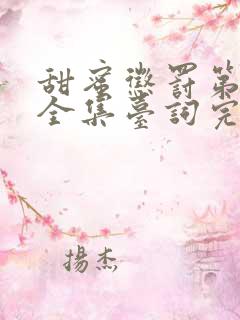 甜蜜懲罰第
全集臺詞完
揚杰